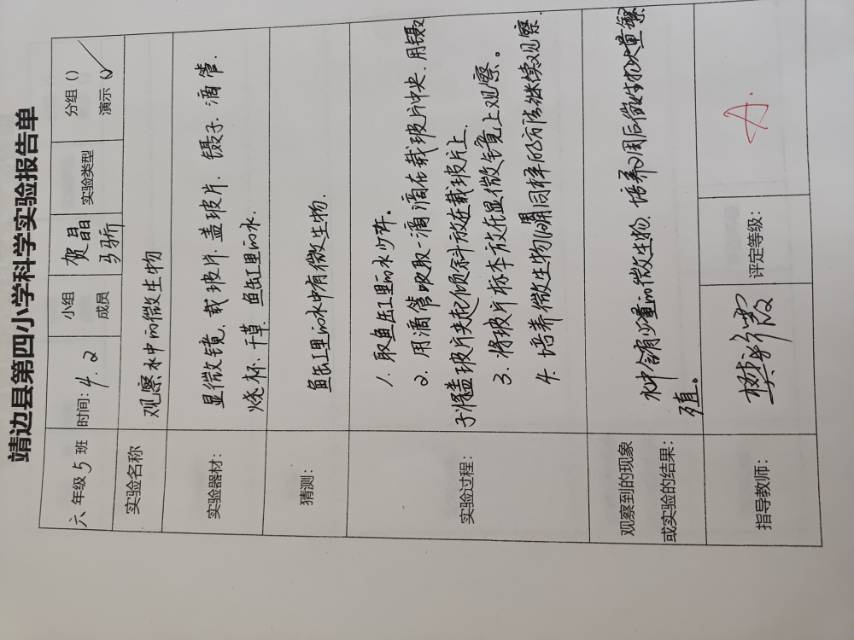 靖边县第四小学科学实验报告单
六年级5班 时间：4.2 小组成员 贺晶 实验类型 分组（） 演示（√）
实验名称 观察水中的微生物
实验器材： 显微镜、载玻片、盖玻片、镊子、滴管、
烧杯、干草、鱼缸里的水.
猜测： 鱼缸里的水中有微生物.
实验过程： 1. 取鱼缸里的水少许。
2. 用滴管吸取一滴滴在载玻片中央，用镊
子将盖玻片夹起倾斜放在载玻片上.
3. 将玻片标本放在显微镜上观察。
4. 培养微生物1周用同样的方法继续观察.
观察到的现象或实验的结果： 水中含有少量的微生物，培养1周后微生物大量繁
殖。
指导教师： 樊彩霞 评定等级： A.